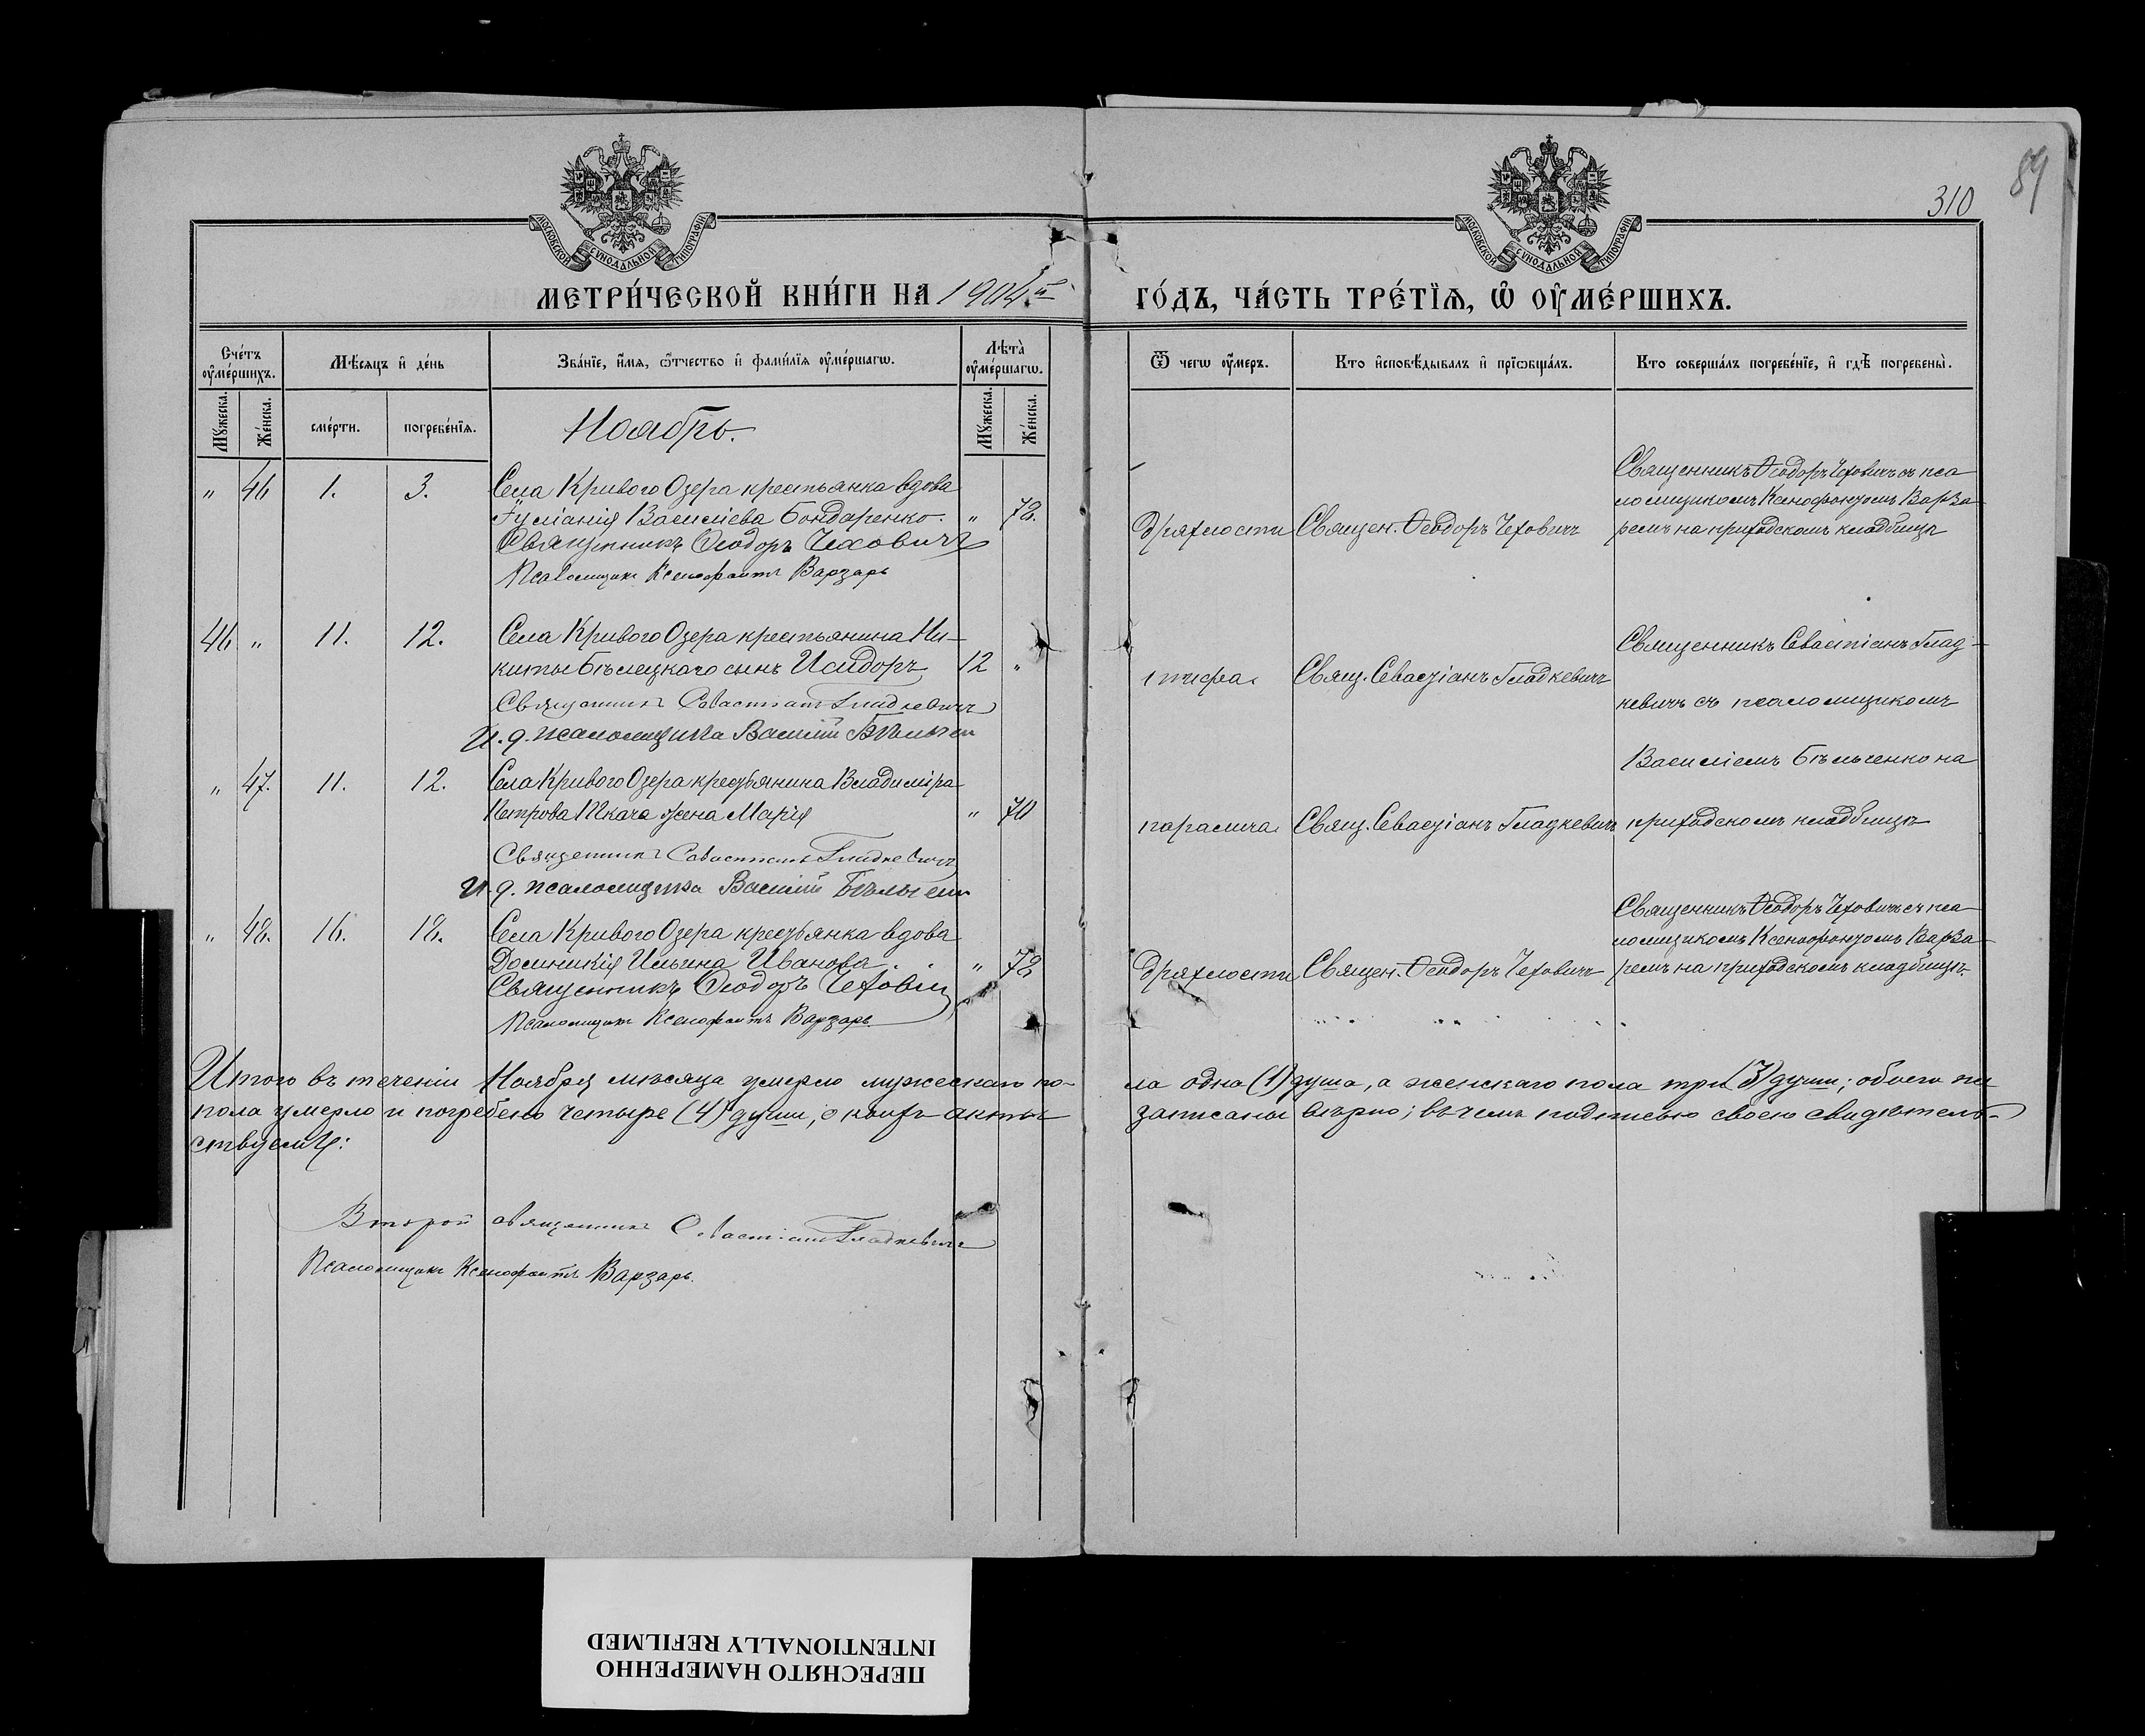 МОСКОВСКОЙ СУНОДАЛЬНОЙ ТИПОГРАФІИ
МОСКОВСКОЙ СУНОДАЛЬНОЙ ТИПОГРАФІИ
310
89
МЕТРИ́ЧЕСКОЙ КНИ́ГИ НА 1904й
ГО́ДЪ, ЧА́СТЬ ТРЕ́ТЇѦ, Ѡ҆ ОУ҆МЕ́РШИХЪ.
Сче́тъ оу҆ме́ршихъ.
Мѣ́сяцъ и҆ де́нь
Зва́нїе, и҆́мѧ, ѻ҆́тчество и҆ фами́лїѧ оу҆ме́ршагѡ.
Лѣта̀ оу҆ме́ршагѡ.
Ѿ чегѡ оу҆́меръ.
Кто и҆сповѣ́дывалъ и҆ прїѡбща́лъ.
Кто соверша́лъ погребе́нїе, и҆ гдѣ̀ погребены̀.
Му́жеска.
Же́нска.
сме́рти.
погребе́нїѧ.
Му́жеска.
Же́нска.
Ноябрь.
" 46 1. 3. Села Кривого Озера крестьянка вдова
Іуліанія Василіева Бондаренко. " 72.
Священникъ Ѳеодоръ Чеховичъ
Псаломщикъ Ксенофонтъ Варзарь
дряхлости
Священ. Ѳеодоръ Чеховичъ
Священникъ Ѳеодоръ Чеховичъ съ пса
ломщикомъ Ксенофонтомъ Варза-
ремъ на приходскомъ кладбищѣ
46 " 11. 12. Села Кривого Озера крестьянина Ни-
киты Бѣлецкаго сынъ Исидоръ 12 "
Священникъ Севастіанъ Гладкевичъ
И. д. псаломщика Василій Бѣльченко
тифа
Свящ. Севастіанъ Гладкевичъ
Священникъ Севастіанъ Глад-
кевичъ съ псаломщикомъ
Василіемъ Бѣльченко на
приходскомъ кладбищѣ
" 47. 11. 12. Села Кривого Озера крестьянина Владиміра
Петрова Ткача жена Марія " 70
Священникъ Севастіанъ Гладкевичъ
И. д. псаломщика Василій Бѣльченко
паралича
Свящ. Севастіанъ Гладкевичъ
" 48. 16. 18. Села Кривого Озера крестьянка вдова
Домникія Ильина Иванова. " 72
Священникъ Ѳеодоръ Чеховичъ
Псаломщикъ Ксенофонтъ Варзарь
дряхлости
Священ. Ѳеодоръ Чеховичъ
Священникъ Ѳеодоръ Чеховичъ съ пса
ломщикомъ Ксенофонтомъ Варза-
ремъ на приходскомъ кладбищѣ.
Итого въ теченіи Ноября мѣсяца умерло мужескаго по-
ла одна (1) душа, а женскаго пола три (3) души; обоего по
пола умерло и погребено четыре (4) души, о коихъ акты
записаны вѣрно; въ чемъ подписью своею свидѣтель-
ствуемъ:
Второй священникъ Севастіанъ Гладкевичъ
Псаломщикъ Ксенофонтъ Варзарь.
ПЕРЕСНЯТО НАМЕРЕННО
INTENTIONALLY REFILMED